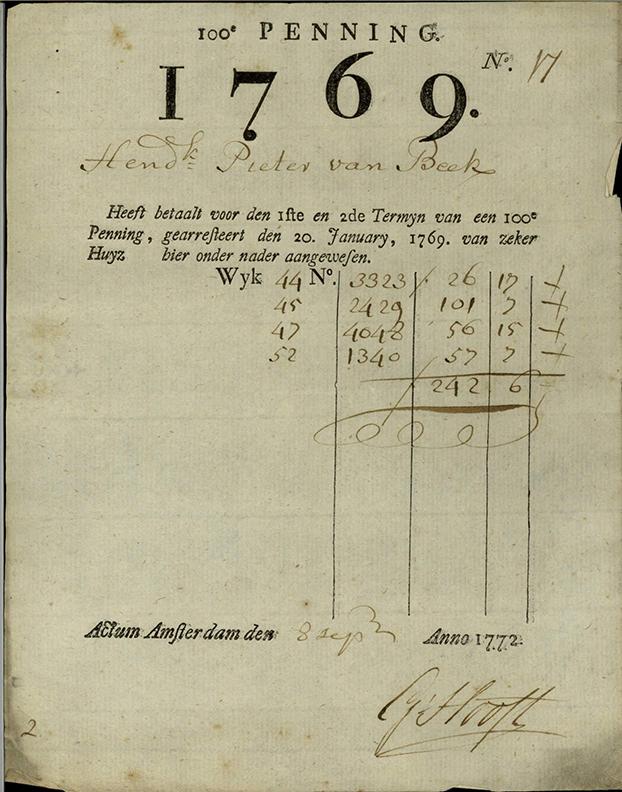 100e PENNING.
No. 17
1769.
Hendk Pieter van Beek
Heeft betaalt voor den 1ste en 2de Termyn van een 100e
Penning, gearresteert den 20. January, 1769. van zeker
Huyz hier onder nader aangewesen.
Wyk 44 No. 3323 / 26 17
45 2429 101 7
47 4048 56 15
52 1340 57 7
242 6
Actum Amsterdam den 8 sepr Anno 1772.
Hooft
2